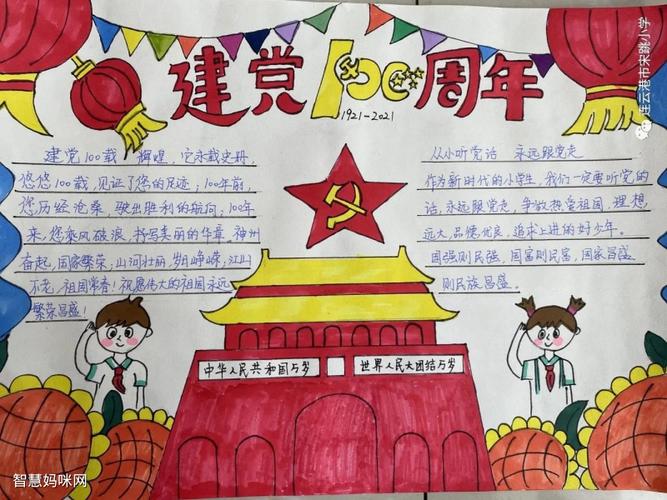 建党100周年
1921-2021
建党100载 辉煌,它永载史册,
悠悠100载,见证了您的足迹;100年前,
您历经沧桑,驶出胜利的航向;100年
来,您乘风破浪,书写美丽的华章。神州
奋起,国家繁荣,山河壮丽,岁月峥嵘,江山
不老,祖国常春!祝愿伟大的祖国永远
繁荣昌盛!
从小听党话 永远跟党走
作为新时代的小学生,我们一定要听党的
话,永远跟党走,争做热爱祖国,理想
远大,品德优良,追求上进的好少年。
国强则民强,国富则民富,国家昌盛
则民族昌盛。
中华人民共和国万岁
世界人民大团结万岁
连云港市宋跳小学
智慧妈咪网